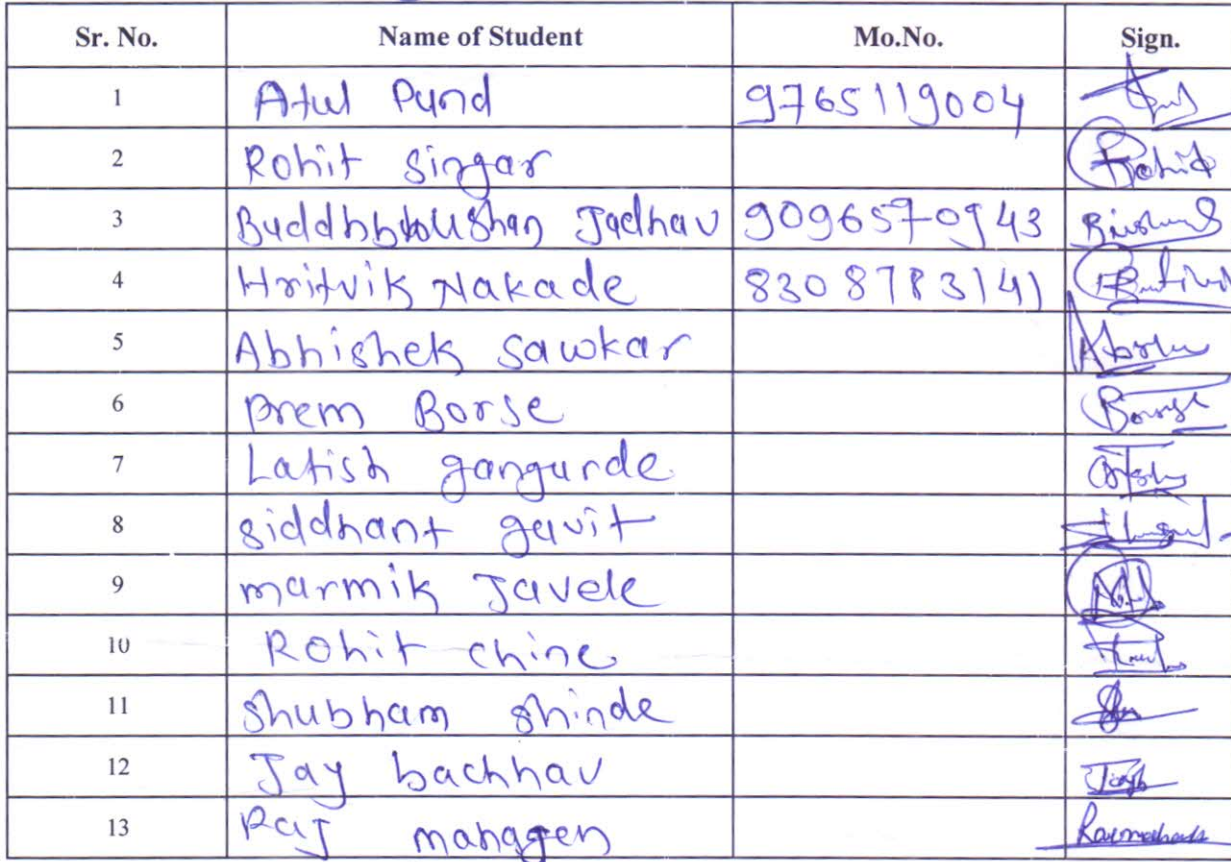 Sr. No. Name of Student Mo.No. Sign.
1 Atul Pund 9765119004
2 Rohit singar Rohit
3 Jadhav 9096570943
4 Hritvik Nakade 8308783141
5 Abhishek sawkar
6 Prem Borse
7 Latish gangurde
8 siddhant gavit
9 marmik Javele
10 Rohit chine
11 shubham shinde
12 Jay bachhav
13 Raj